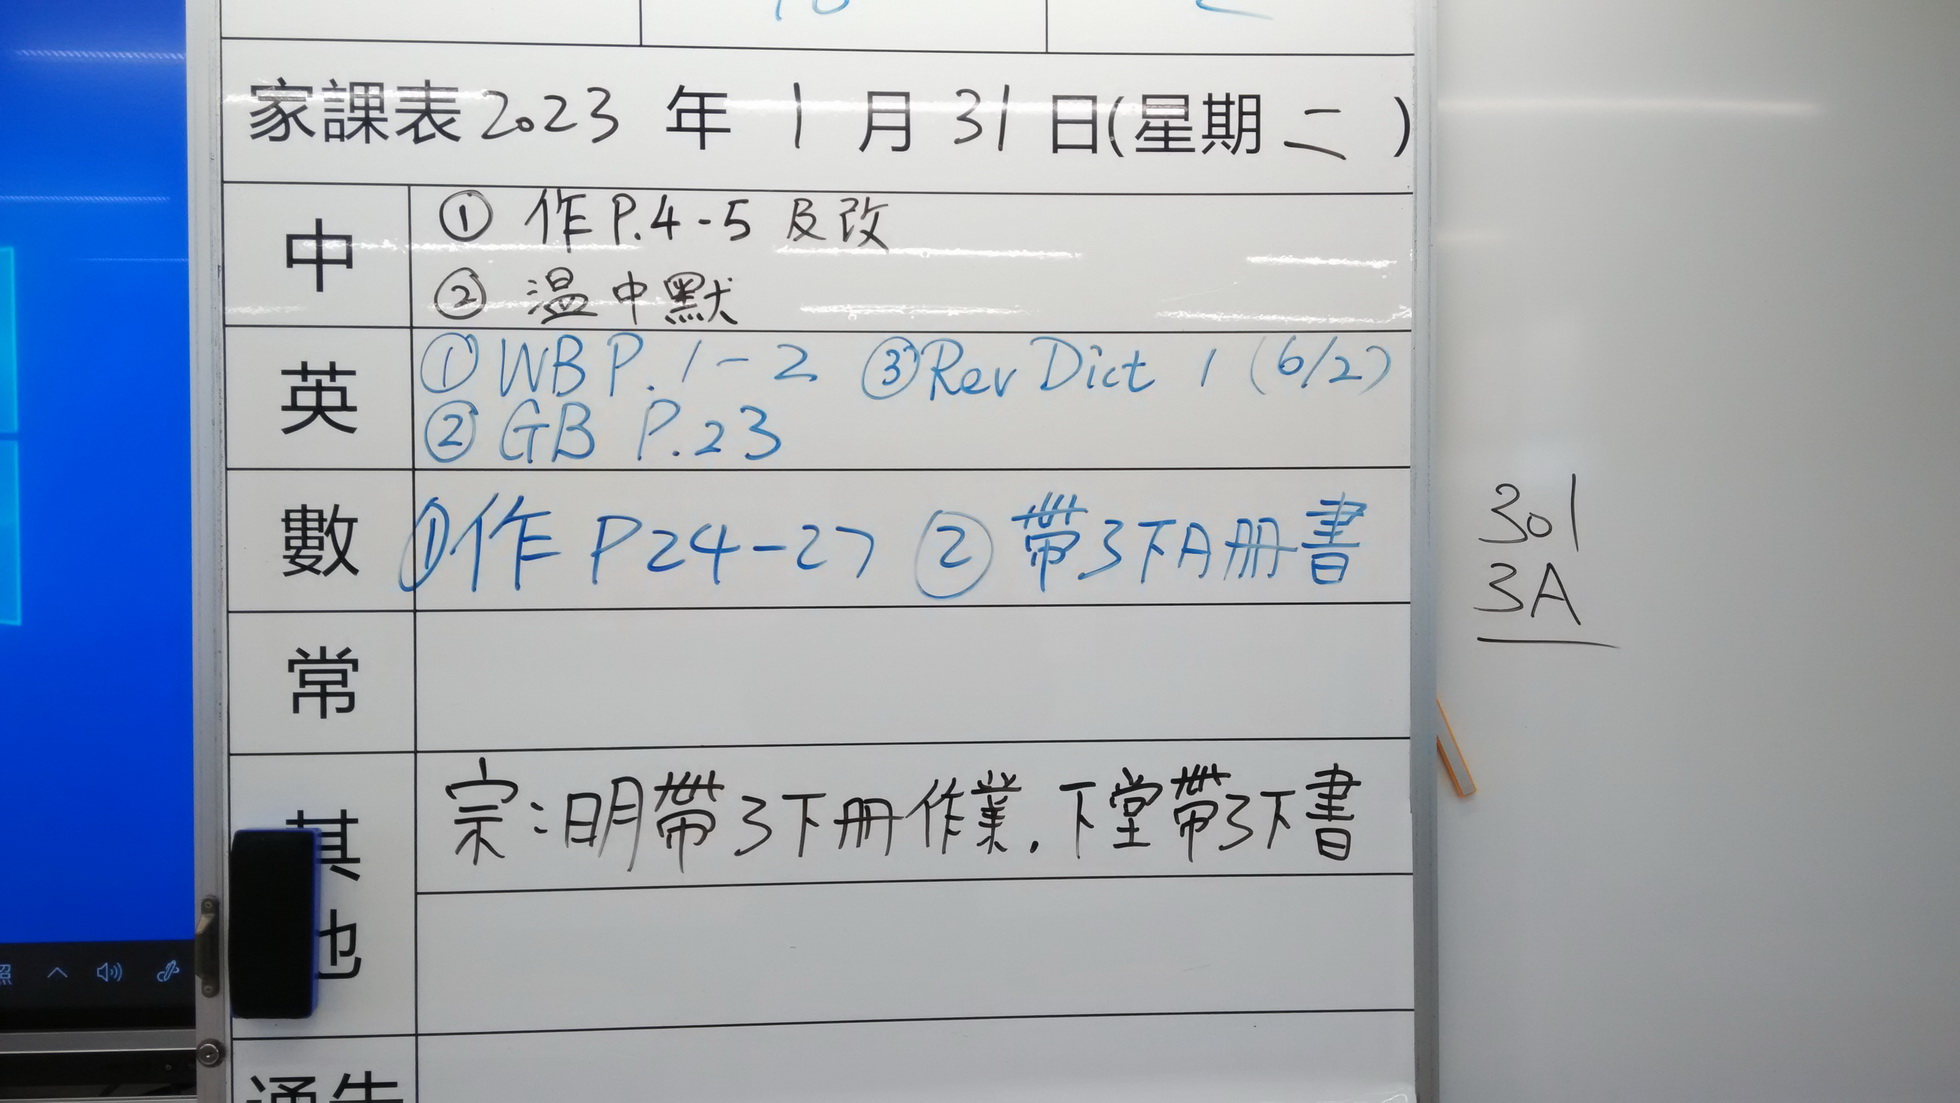 家課表 2023 年 1 月 31 日(星期二)
中
① 作 P.4-5 及改
② 温中默
英
① WB P.1-2 ③ Rev Dict 1 (6/2)
② GB P.23
數
① 作 P24-27 ② 帶3下A冊書
常
其他
宗:明帶3下冊作業.下堂帶3下書
通告
301
3A